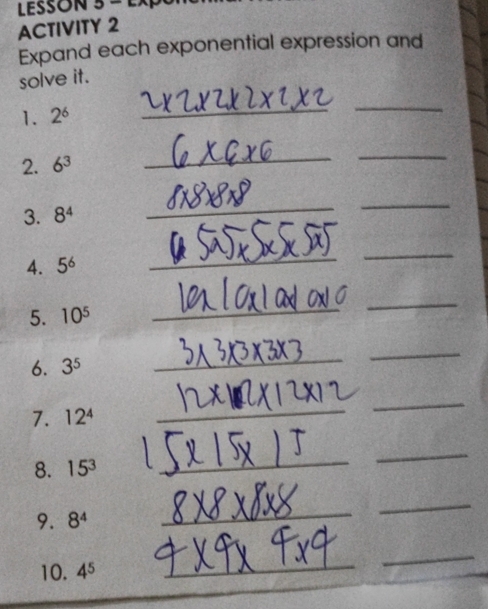 LESSON 5 –
ACTIVITY 2
Expand each exponential expression and
solve it.
1. 2⁶ 2x2x2x2x2x2
2. 6³ 6x6x6
3. 8⁴ 8x8x8x8
4. 5⁶ 5x5x5x5x5x5
5. 10⁵ 10x10x10x10x10
6. 3⁵ 3x3x3x3x3
7. 12⁴ 12x12x12x12
8. 15³ 15x15x15
9. 8⁴ 8x8x8x8
10. 4⁵ 4x4x4x4